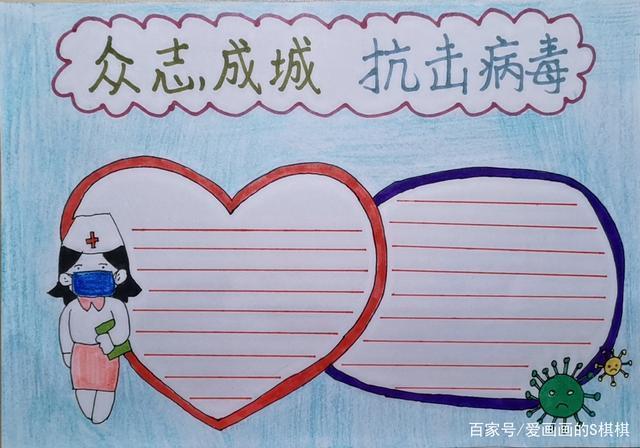 众志成城 抗击病毒
百家号/爱画画的S棋棋